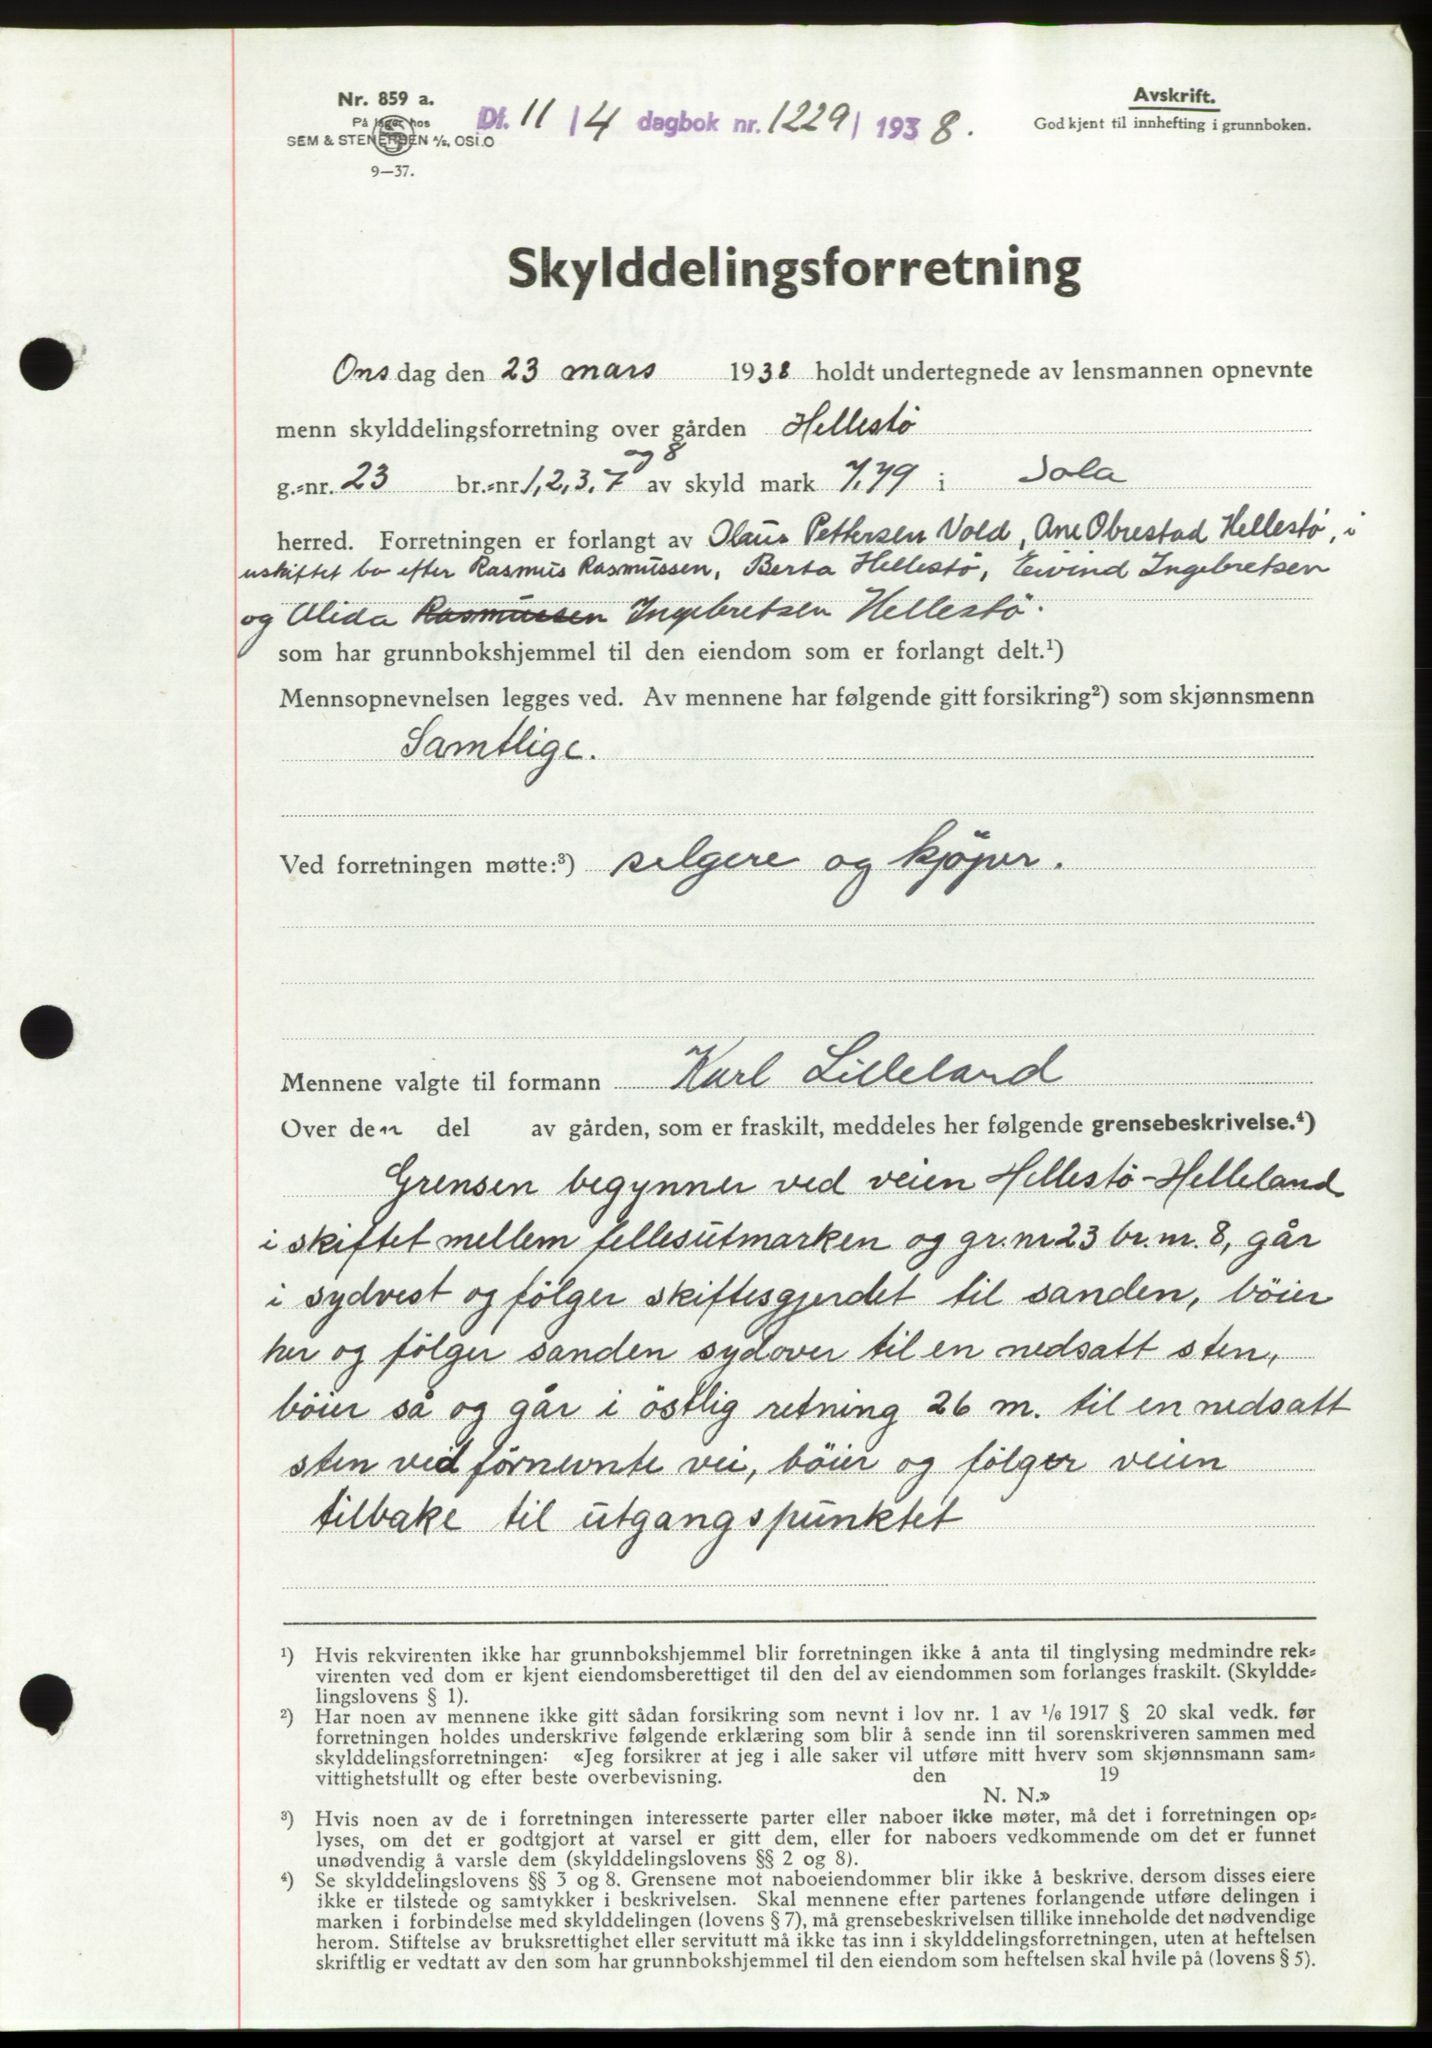 Nr. 859 a.
På lager hos
SEM & STENERSEN A/S, OSLO
9—37.
Df. 11/4 dagbok nr. 1229/1938.
Avskrift.
Godkjent til innhefting i grunnboken.
Skylddelingsforretning
Onsdag den 23 mars 1938 holdt undertegnede av lensmannen opnevnte
menn skylddelingsforretning over gården Hellestö
g.=nr. 23 br.=nr. 1, 2, 3, 7 og 8 av skyld mark 7,79 i Sola
herred. Forretningen er forlangt av Olaus Pettersen Vold, Ane Obrestad Hellestö, i
uskiftet bo efter Rasmus Rasmussen, Berta Hellestö, Eivind Ingebretsen
og Alida Rasmussen Ingebretsen Hellestö.
som har grunnbokshjemmel til den eiendom som er forlangt delt.¹)
Mennsopnevnelsen legges ved. Av mennene har følgende gitt forsikring²) som skjønnsmenn
Samtlige.
Ved forretningen møtte:³) selgere og kjöper.
Mennene valgte til formann Karl Lilleland
Over den del av gården, som er fraskilt, meddeles her følgende grensebeskrivelse.⁴)
Grensen begynner ved veien Hellestö-Helleland
i skiftet mellem fellesutmarken og gr.nr 23 br.nr. 8, går
i sydvest og fölger skiftesgjerdet til sanden, böier
her og fölger sanden sydover til en nedsatt sten,
böier så og går i östlig retning 26 m. til en nedsatt
sten ved förnevnte vei, böier og fölger veien
tilbake til utgangspunktet
¹) Hvis rekvirenten ikke har grunnbokshjemmel blir forretningen ikke å anta til tinglysing medmindre rek=
virenten ved dom er kjent eiendomsberettiget til den del av eiendommen som forlanges fraskilt. (Skyldde=
lingslovens § 1).
²) Har noen av mennene ikke gitt sådan forsikring som nevnt i lov nr. 1 av 1/6 1917 § 20 skal vedk. før
forretningen holdes underskrive følgende erklæring som blir å sende inn til sorenskriveren sammen med
skylddelingsforretningen: «Jeg forsikrer at jeg i alle saker vil utføre mitt hverv som skjønnsmann sam=
vittighetsfullt og efter beste overbevisning. den 19
N. N.»
³) Hvis noen av de i forretningen interesserte parter eller naboer ikke møter, må det i forretningen op=
lyses, om det er godtgjort at varsel er gitt dem, eller for naboers vedkommende om det er funnet
unødvendig å varsle dem (skylddelingslovens §§ 2 og 8).
⁴) Se skylddelingslovens §§ 3 og 8. Grensene mot naboeiendommer blir ikke å beskrive, dersom disses eiere
ikke er tilstede og samtykker i beskrivelsen. Skal mennene efter partenes forlangende utføre delingen i
marken i forbindelse med skylddelingen (lovens § 7), må grensebeskrivelsen tillike inneholde det nødvendige
herom. Stiftelse av bruksrettighet eller servitutt må ikke tas inn i skylddelingsforretningen, uten at heftelsen
skriftlig er vedtatt av den som har grunnbokshjemmel til den eiendom som heftelsen skal hvile på (lovens § 5).